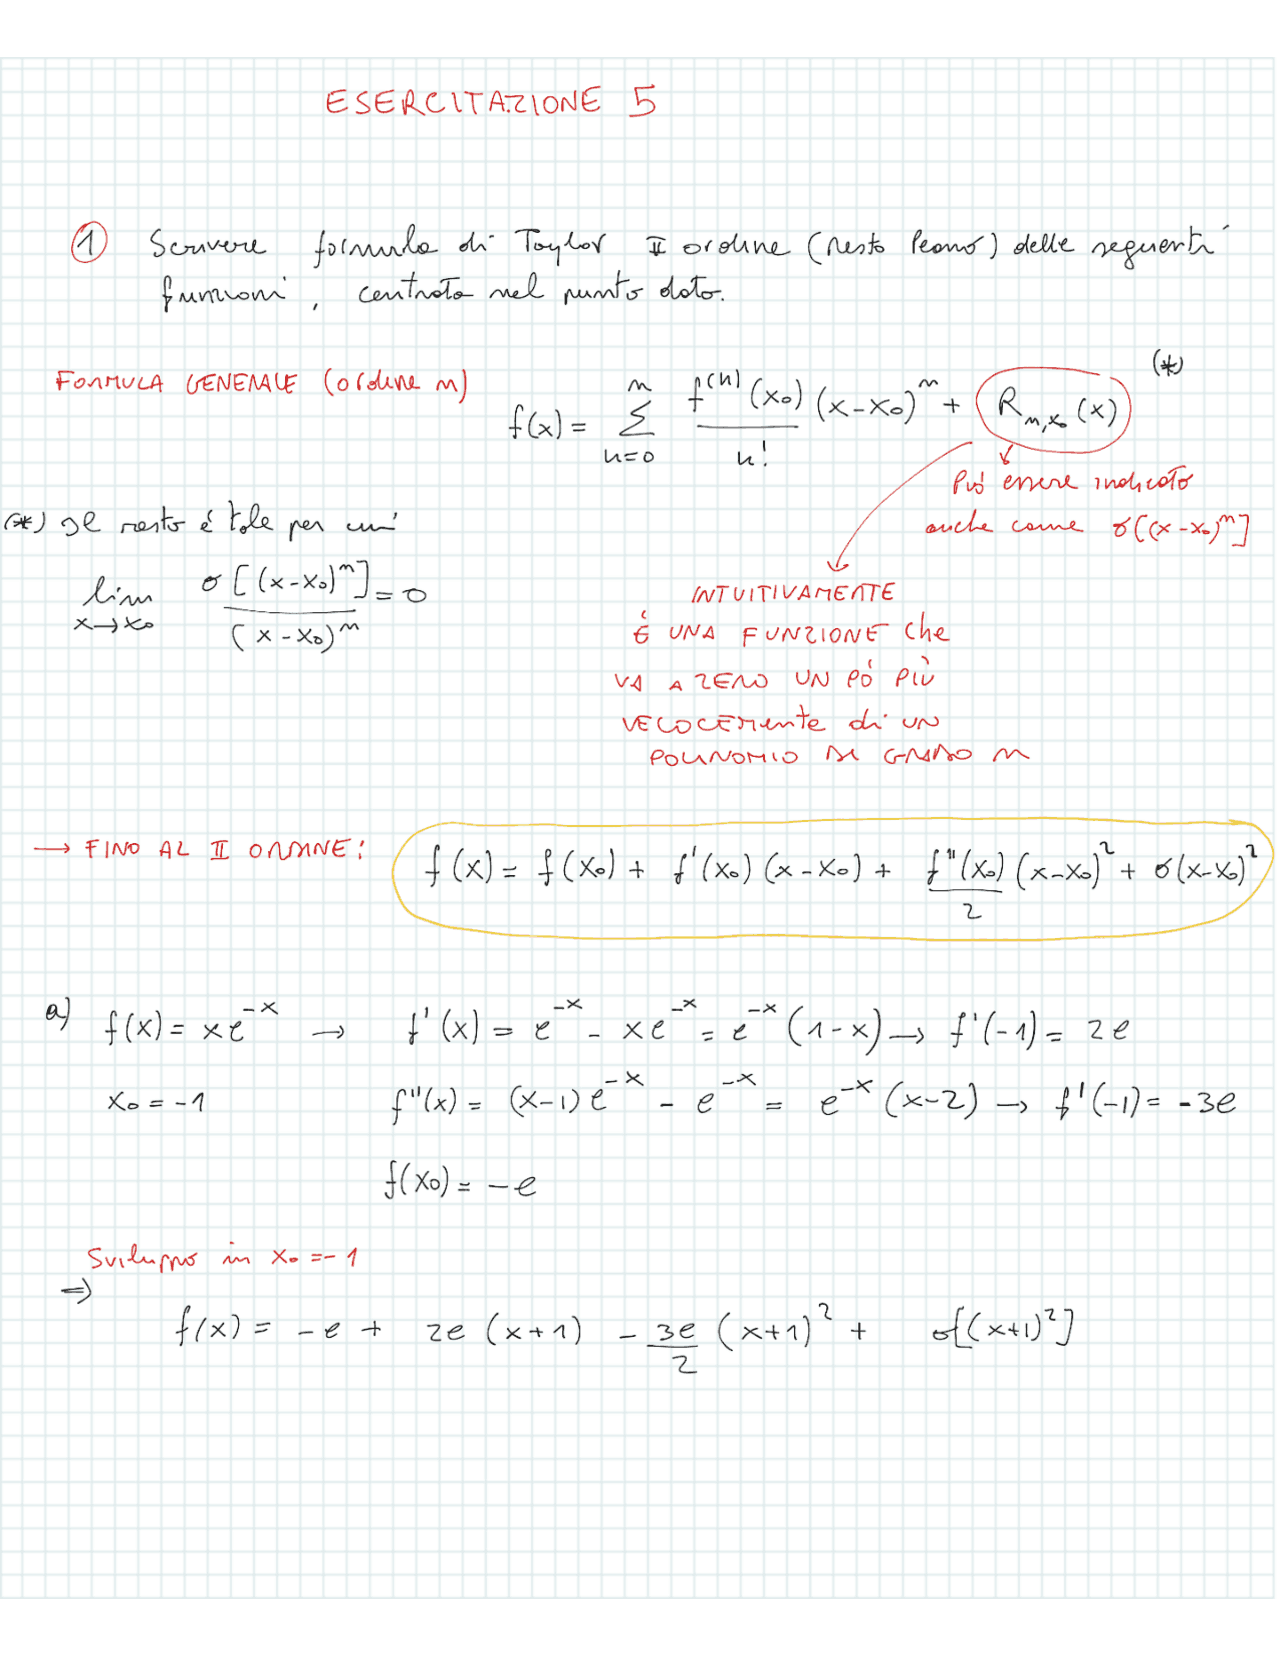 ESERCITAZIONE 5
① Scrivere formula di Taylor II ordine (resto Peano) delle seguenti
funzioni, centrata nel punto dato.
FORMULA GENERALE (ordine n)
f(x) = \sum_{n=0}^{n} \frac{f^{(n)}(x₀)}{n!} (x-x₀)^n + R_{n,x₀}(x) (*)
Può essere indicato
anche come o[(x-x₀)^n]
(*) Il resto é tale per cui
\lim_{x→x₀} \frac{o[(x-x₀)^n]}{(x-x₀)^n} = 0
INTUITIVAMENTE
É UNA FUNZIONE che
VA A ZERO UN PÓ PIÙ
VELOCEMente di UN
POLINOMIO DI GRADO n
→ FINO AL II ORDINE:
f(x) = f(x₀) + f'(x₀)(x-x₀) + \frac{f''(x₀)}{2}(x-x₀)² + o(x-x₀)²
a) f(x) = xe^{-x} → f'(x) = e^{-x} - xe^{-x} = e^{-x}(1-x) → f'(-1) = 2e
x₀ = -1 f''(x) = (x-1)e^{-x} - e^{-x} = e^{-x}(x-2) → f'(-1) = -3e
f(x₀) = -e
Sviluppo in x₀ = -1
⇒
f(x) = -e + 2e(x+1) - \frac{3e}{2}(x+1)² + o[(x+1)²]